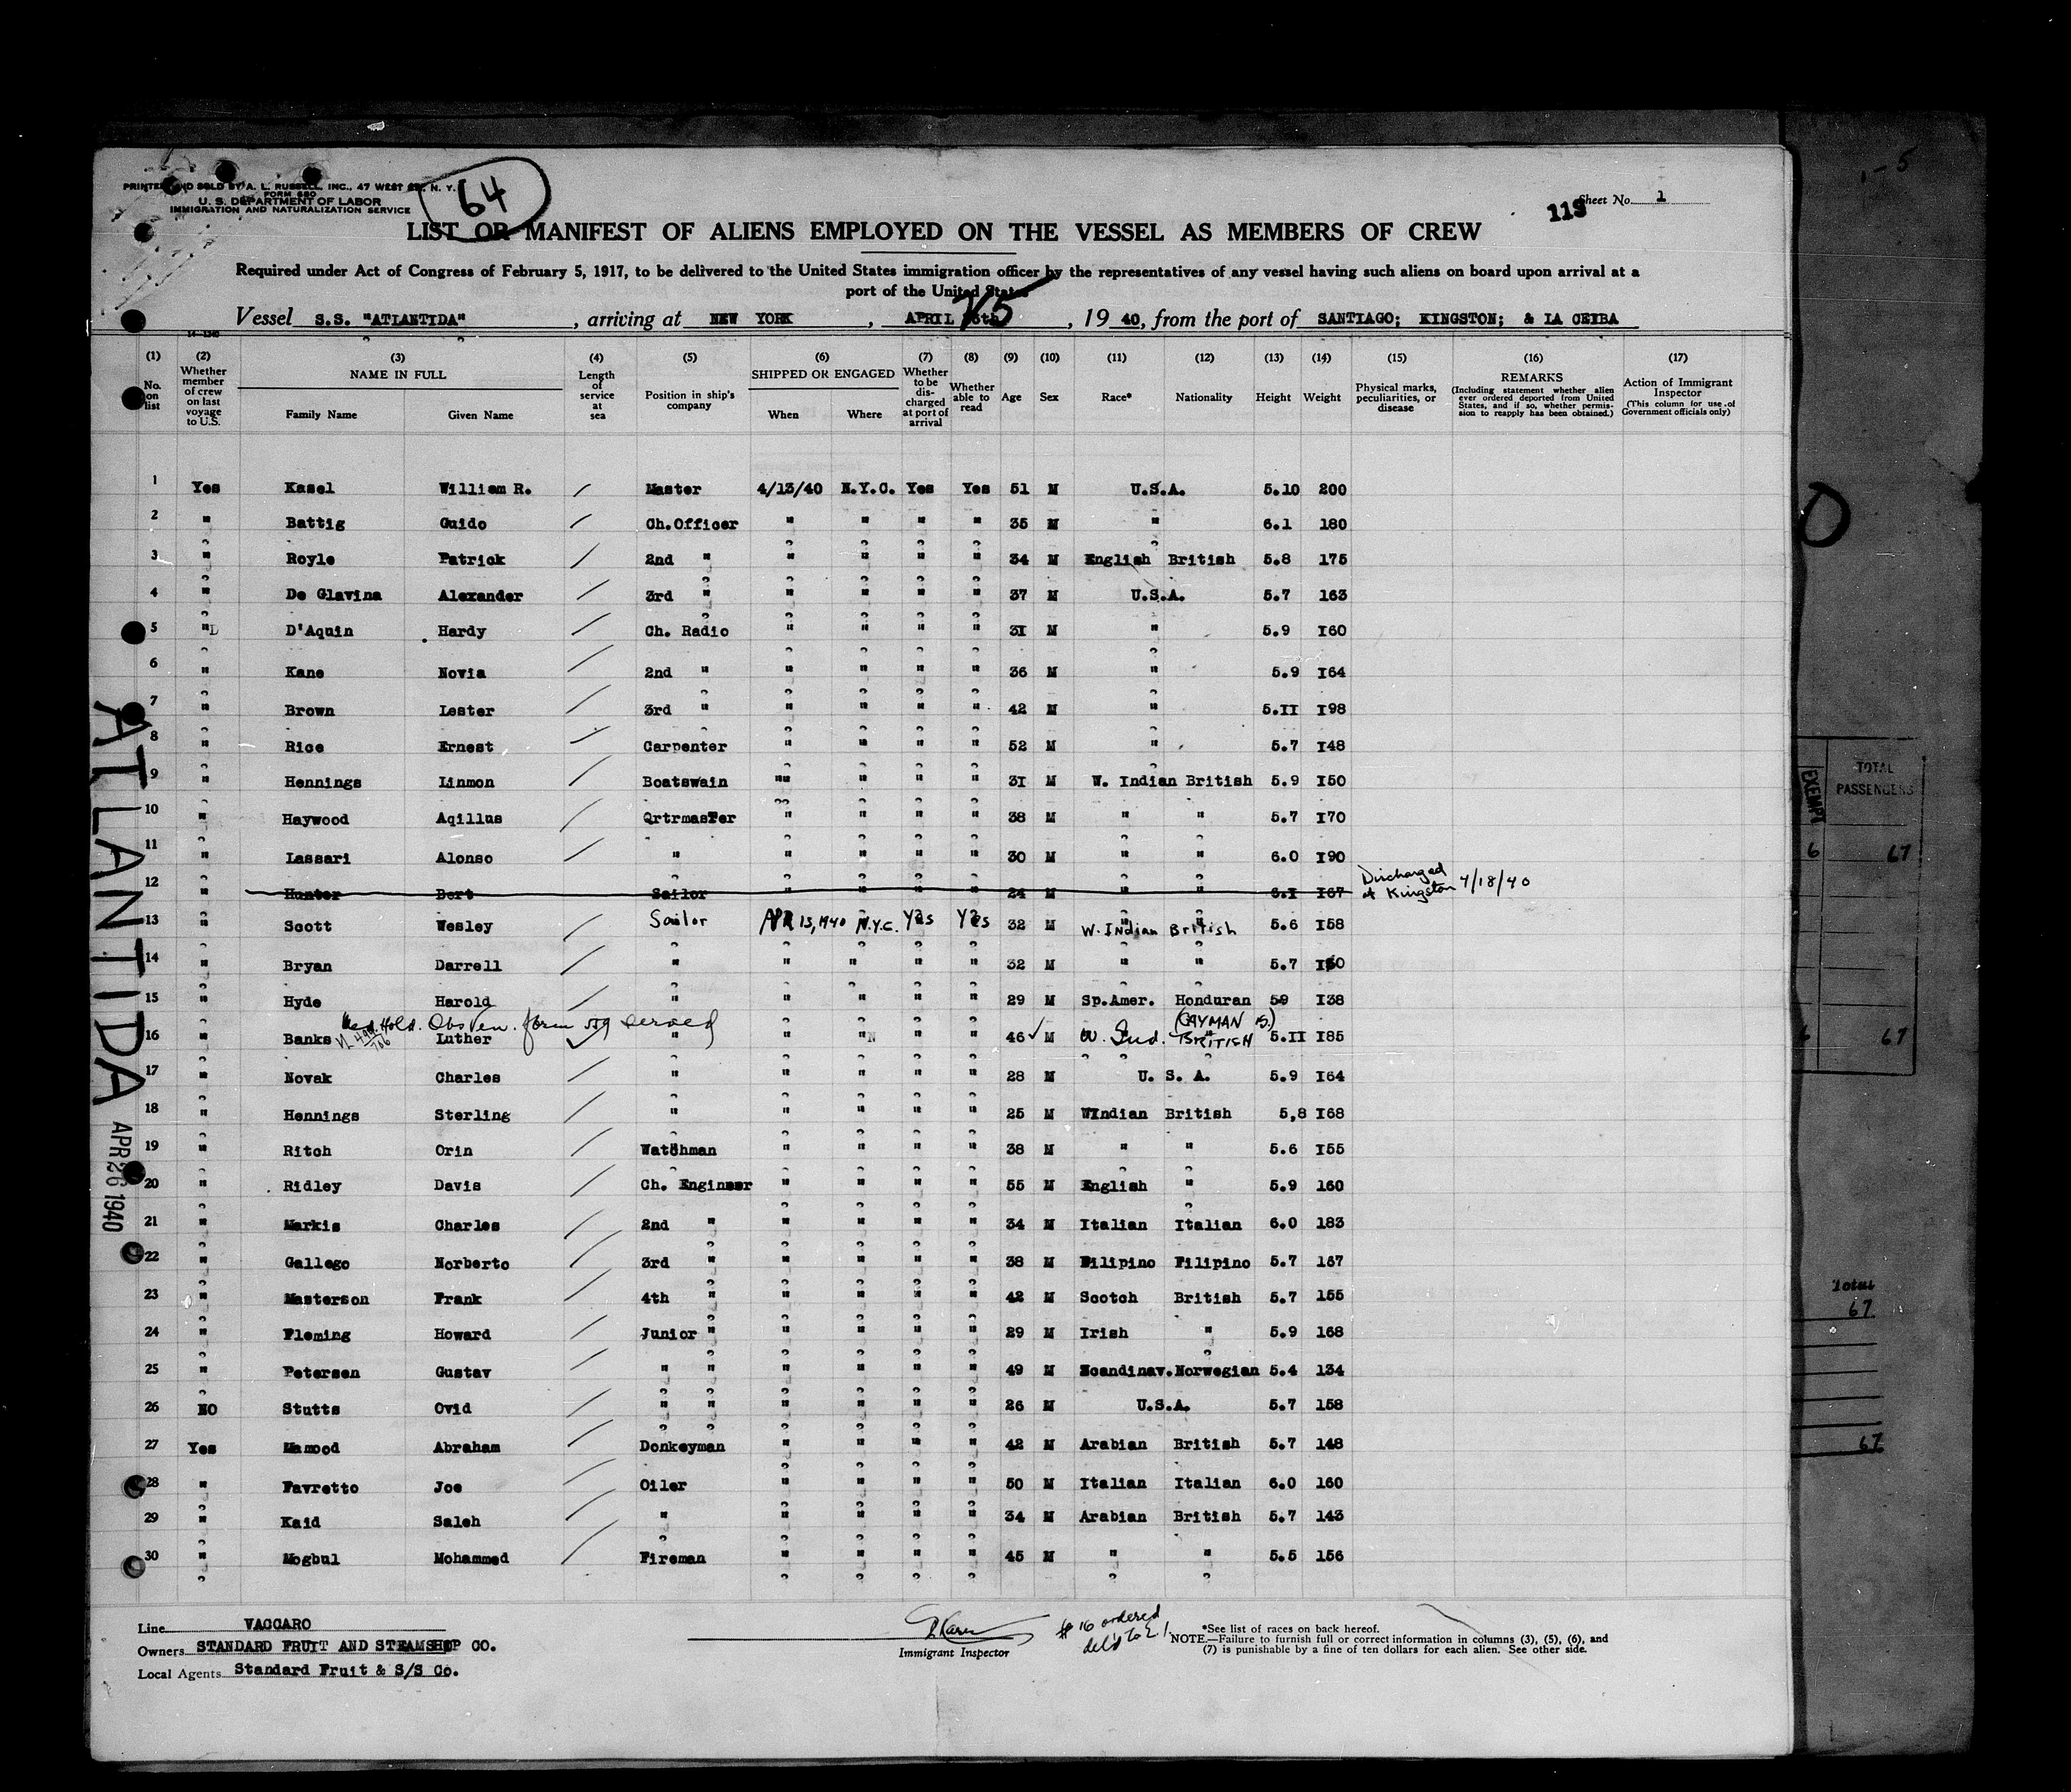 PRINTED AND SOLD BY A. L. RUSSELL, INC., 47 WEST ST. N. Y.
FORM 680
U. S. DEPARTMENT OF LABOR
IMMIGRATION AND NATURALIZATION SERVICE
64
119
Sheet No. 1
LIST OR MANIFEST OF ALIENS EMPLOYED ON THE VESSEL AS MEMBERS OF CREW
Required under Act of Congress of February 5, 1917, to be delivered to the United States immigration officer by the representatives of any vessel having such aliens on board upon arrival at a
port of the United States
Vessel S.S. "ATLANTIDA", arriving at NEW YORK, APRIL 25, 1940, from the port of SANTIAGO; KINGSTON; & LA CEIBA
(1) No. on list
(2) Whether member of crew on last voyage to U.S.
(3) NAME IN FULL Family Name Given Name
(4) Length of service at sea
(5) Position in ship's company
(6) SHIPPED OR ENGAGED When Where
(7) Whether to be discharged at port of arrival
(8) Whether able to read
(9) Age
(10) Sex
(11) Race*
(12) Nationality
(13) Height
(14) Weight
(15) Physical marks, peculiarities, or disease
(16) REMARKS (Including statement whether alien ever ordered deported from United States, and if so, whether permission to reapply has been obtained.)
(17) Action of Immigrant Inspector (This column for use of Government officials only)
1 Yes Kasel William R. Master 4/13/40 N.Y.C. Yes Yes 51 M U.S.A. 5.10 200
2 " Battig Guido Ch.Officer " " " " 35 M " 6.1 180
3 " Royle Patrick 2nd " " " " " 34 M English British 5.8 175
4 " De Glavina Alexander 3rd " " " " " 37 M U.S.A. 5.7 163
5 " D'Aquin Hardy Ch. Radio " " " " 31 M " 5.9 160
6 " Kane Novia 2nd " " " " " 36 M " 5.9 164
7 " Brown Lester 3rd " " " " " 42 M " 5.11 198
8 " Rice Ernest Carpenter " " " " 52 M " 5.7 148
9 " Hennings Linmon Boatswain "" " " " 31 M W. Indian British 5.9 150
10 " Haywood Aqillus QrtrmasTer " " " " 38 M " " 5.7 170
11 " Lassari Alonso " " " " " 30 M " " 6.0 190
12 " Hunter Bert Sailor " " " " 24 M " " 6.1 167 Discharged at Kingston 4/18/40
13 " Scott Wesley Sailor APR 13, 1940 N.Y.C. Yes Yes 32 M W. Indian British 5.6 158
14 " Bryan Darrell " " " " " 32 M " " 5.7 150
15 " Hyde Harold " " " " " 29 M Sp.Amer. Honduran 59 138
Med. Hold. Obs'en. form 559 served
16 " Banks Luther " " " " 46 M W. Ind. (CAYMAN IS.) BRITISH 5.11 185
17 " Novak Charles " " " " " 28 M U. S. A. 5.9 164
18 " Hennings Sterling " " " " " 25 M WIndian British 5,8 168
19 " Ritch Orin Watchman " " " " 38 M " " 5.6 155
20 " Ridley Davis Ch. Engineer " " " " 55 M English " 5.9 160
21 " Markis Charles 2nd " " " " " 34 M Italian Italian 6.0 183
22 " Gallego Norberto 3rd " " " " " 38 M Filipino Filipino 5.7 167
23 " Masterson Frank 4th " " " " " 42 M Scotch British 5.7 155
24 " Fleming Howard Junior " " " " " 29 M Irish " 5.9 168
25 " Petersen Gustav " " " " " " 49 M Scandinav. Norwegian 5.4 134
26 NO Stutts Ovid " " " " " " 26 M U.S.A. 5.7 158
27 Yes Mamood Abraham Donkeyman " " " " 42 M Arabian British 5.7 148
28 " Favretto Joe Oiler " " " " 50 M Italian Italian 6.0 160
29 " Kaid Saleh " " " " " 34 M Arabian British 5.7 143
30 " Mogbul Mohammed Fireman " " " " 45 M " " 5.5 156
ATLANTIDA
APR 26 1940
Line VACCARO
Owners STANDARD FRUIT AND STEAMSHIP CO.
Local Agents Standard Fruit & S/S Co.
Immigrant Inspector
# 16 ordered
del'd to E.I.
*See list of races on back hereof.
NOTE.—Failure to furnish full or correct information in columns (3), (5), (6), and
(7) is punishable by a fine of ten dollars for each alien. See other side.
EXEMPT
TOTAL
PASSENGERS
6 67
6 67
Total
67
67